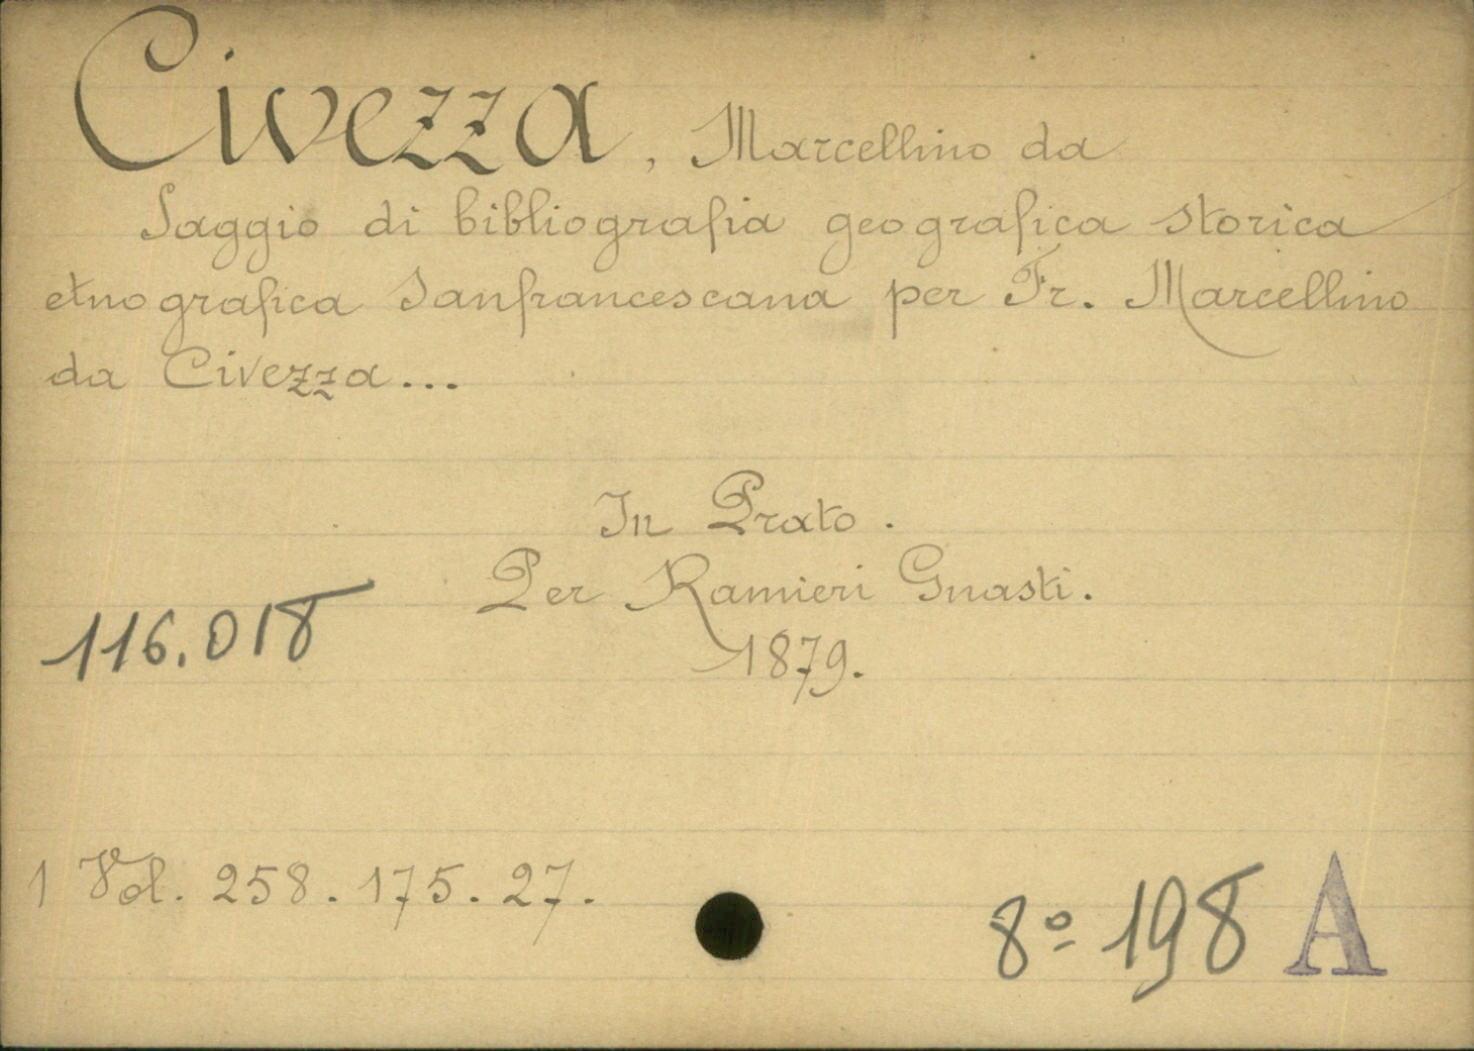 Civezza, Marcellino da
Saggio di bibliografia geografica storica
etnografica Sanfrancescana per Fr. Marcellino
da Civezza...
In Prato.
Per Ramieri Gnasti.
116.018
1879.
1 Vol. 258. 175. 27.
8º 198 A